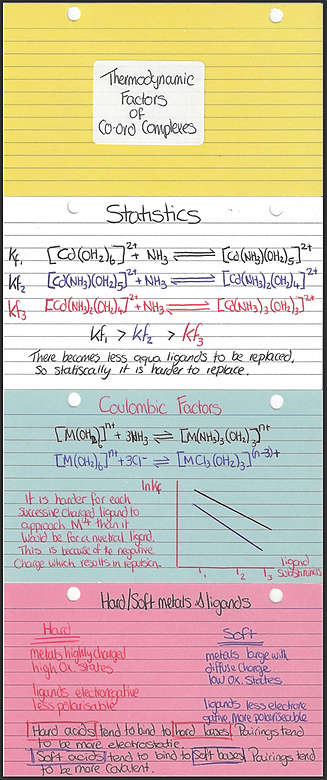 Thermodynamic
Factors
of
Co-ord Complexes
Statistics
Kf₁ [Cd(OH₂)₆]²⁺ + NH₃ ⇌ [Cd(NH₃)(OH₂)₅]²⁺
Kf₂ [Cd(NH₃)(OH₂)₅]²⁺ + NH₃ ⇌ [Cd(NH₃)₂(OH₂)₄]²⁺
Kf₃ [Cd(NH₃)₂(OH₂)₄]²⁺ + NH₃ ⇌ [Cd(NH₃)₃(OH₂)₃]²⁺
Kf₁ > Kf₂ > Kf₃
There becomes less aqua ligands to be replaced,
so statiscally it is harder to replace.
Coulombic Factors
[M(OH₂)₆]ⁿ⁺ + 3NH₃ ⇌ [M(NH₃)₃(OH₂)₃]ⁿ⁺
[M(OH₂)₆]ⁿ⁺ + 3Cl⁻ ⇌ [MCl₃(OH₂)₃]⁽ⁿ⁻³⁾⁺
It is harder for each
successive charged ligand to
approach Mⁿ⁺ than it
would be for a nuetral ligand.
This is because of the negative
charge which results in repulsion.
ln Kf
1 2 3
ligand
substitutions
Hard/Soft metals & ligands
Hard
metals highly charged
high Ox. States
ligands electronegative
less polarisable
Soft
metals large with
diffuse charge
low ox. states
ligands less electrone
gative, more polariseable
Hard acids tend to bind to hard bases. Pairings tend
to be more electrostatic.
Soft acids tend to bind to soft bases. Pairings tend
to be more covalent.